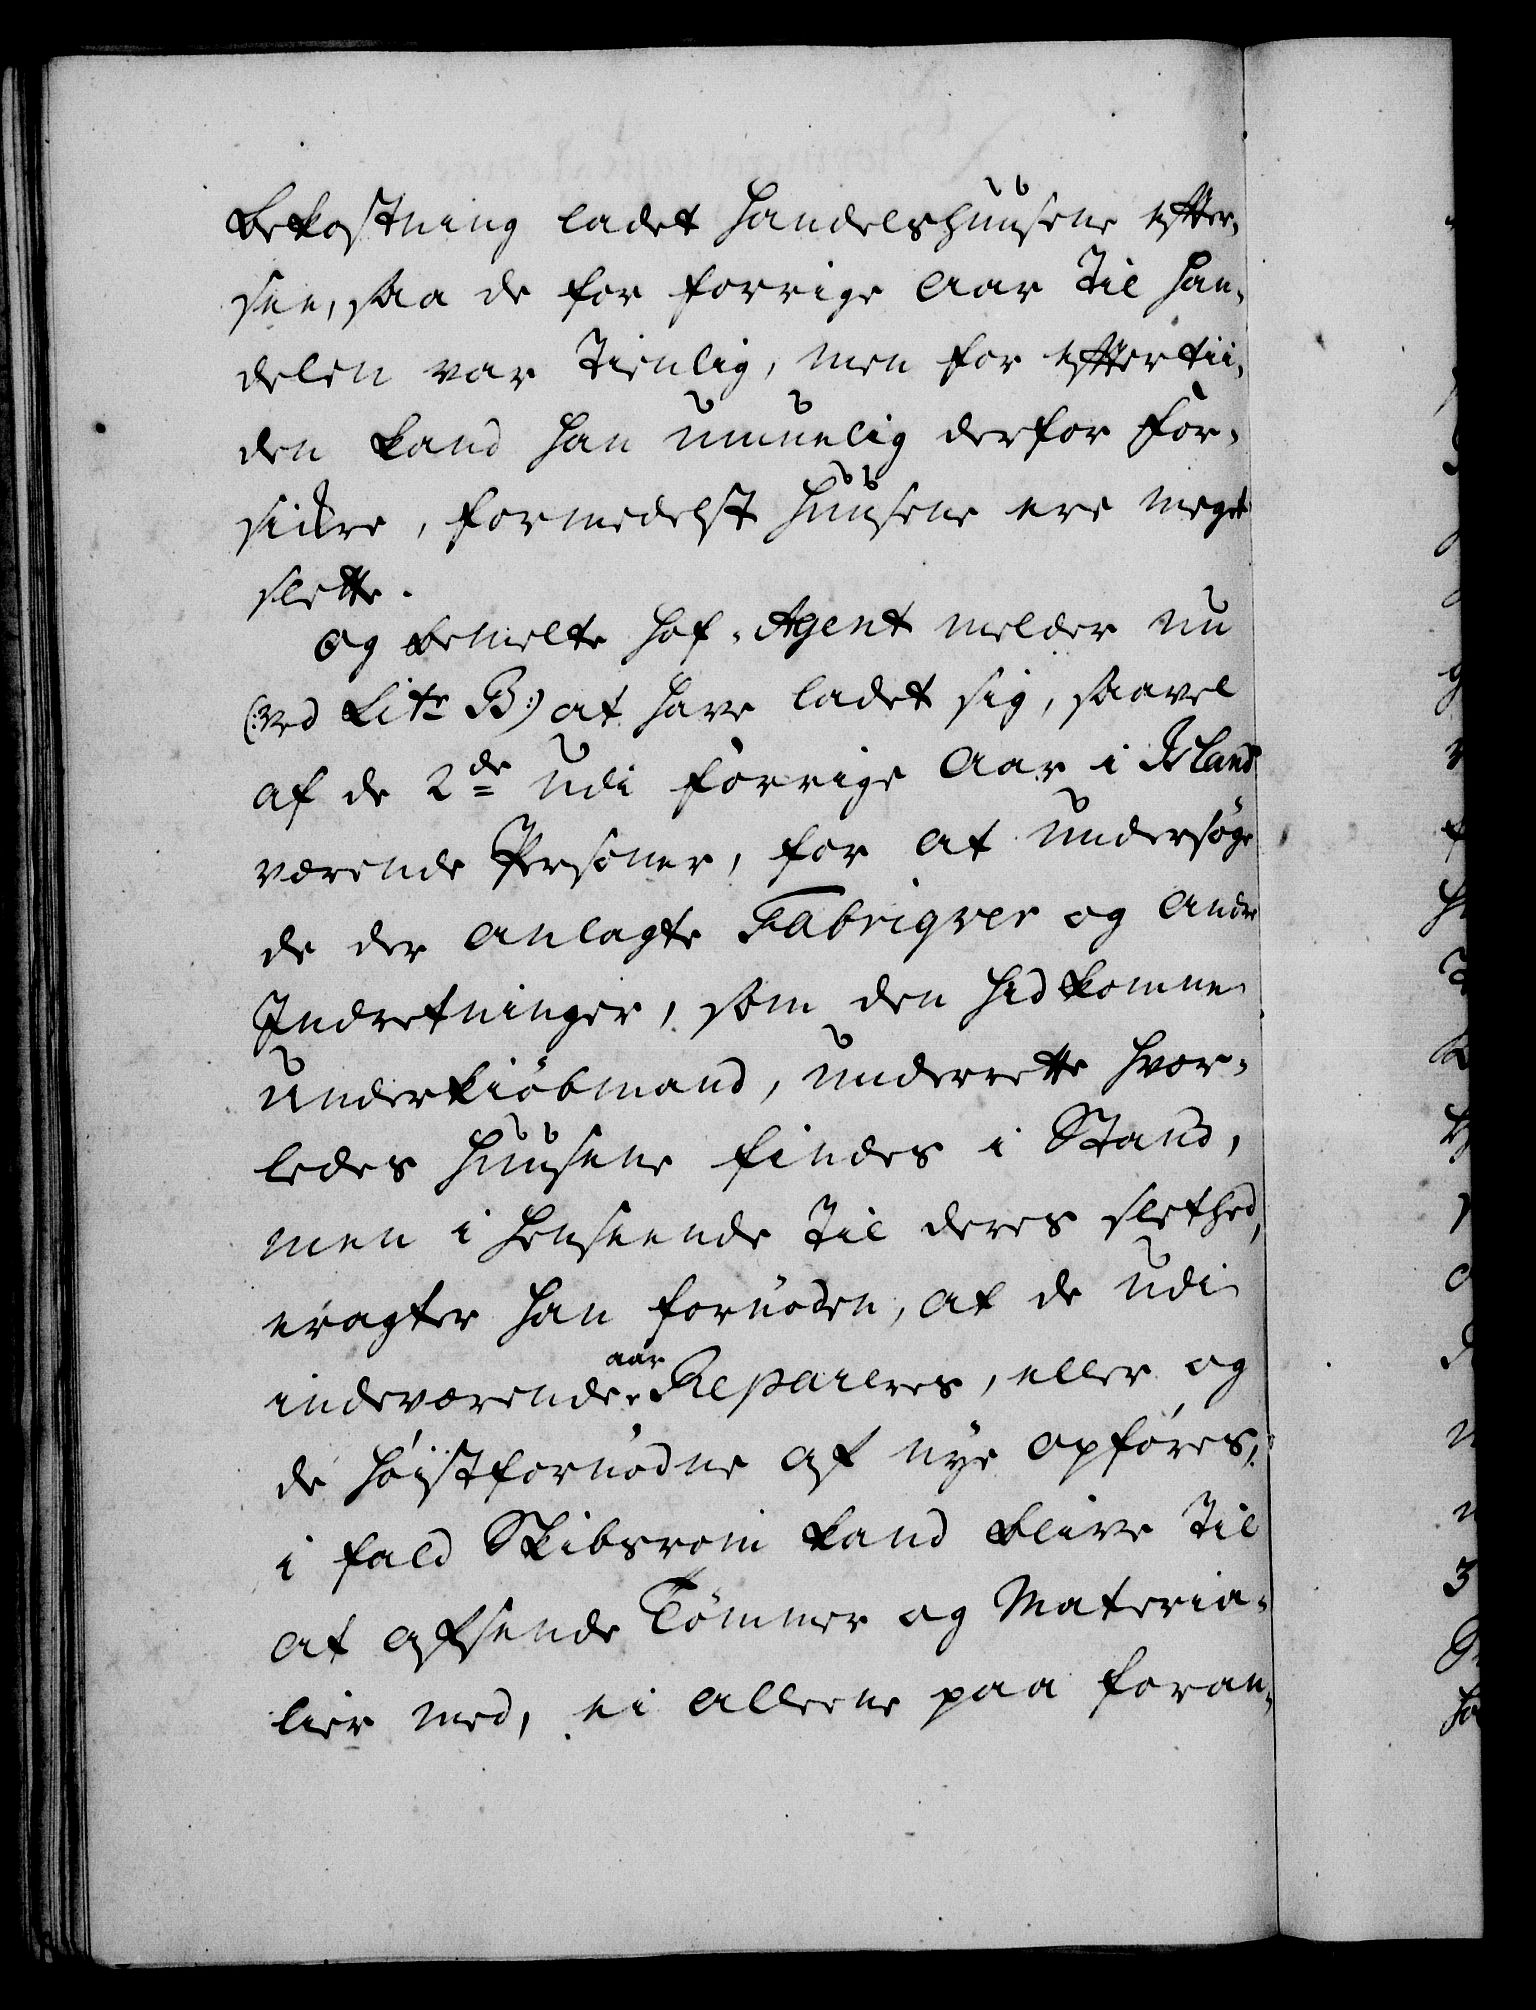 bekostning ladet Handelshuusene efter-
see, saa de for forrige Aar til Han-
delen var tienlig, men for eftertii-
den kand han umuelig derfor for-
sikre, formedelst Huusene ere meget
slette.
Og bemelte Hof-Agent melder nu
(:ved Litr B:) at have ladet sig, saavel
af de 2de udi forrige Aar i Island
værende Persohner, for at undersöge
de der anlagte Fabriqver og andre
Indretninger, som den hidkomne
Underkiöbmand, underrette hvor-
ledes Huusene findes i Stand,
men i Henseende til deres slethed,
eragter han fornöden, at de udi
indeværende aar Repareres, eller og
de höistfornödne af nye opföres,
i fald Skibsrom kand blive til
at afsende Tömmer og Materia-
lier med, ei alleene paa foran-